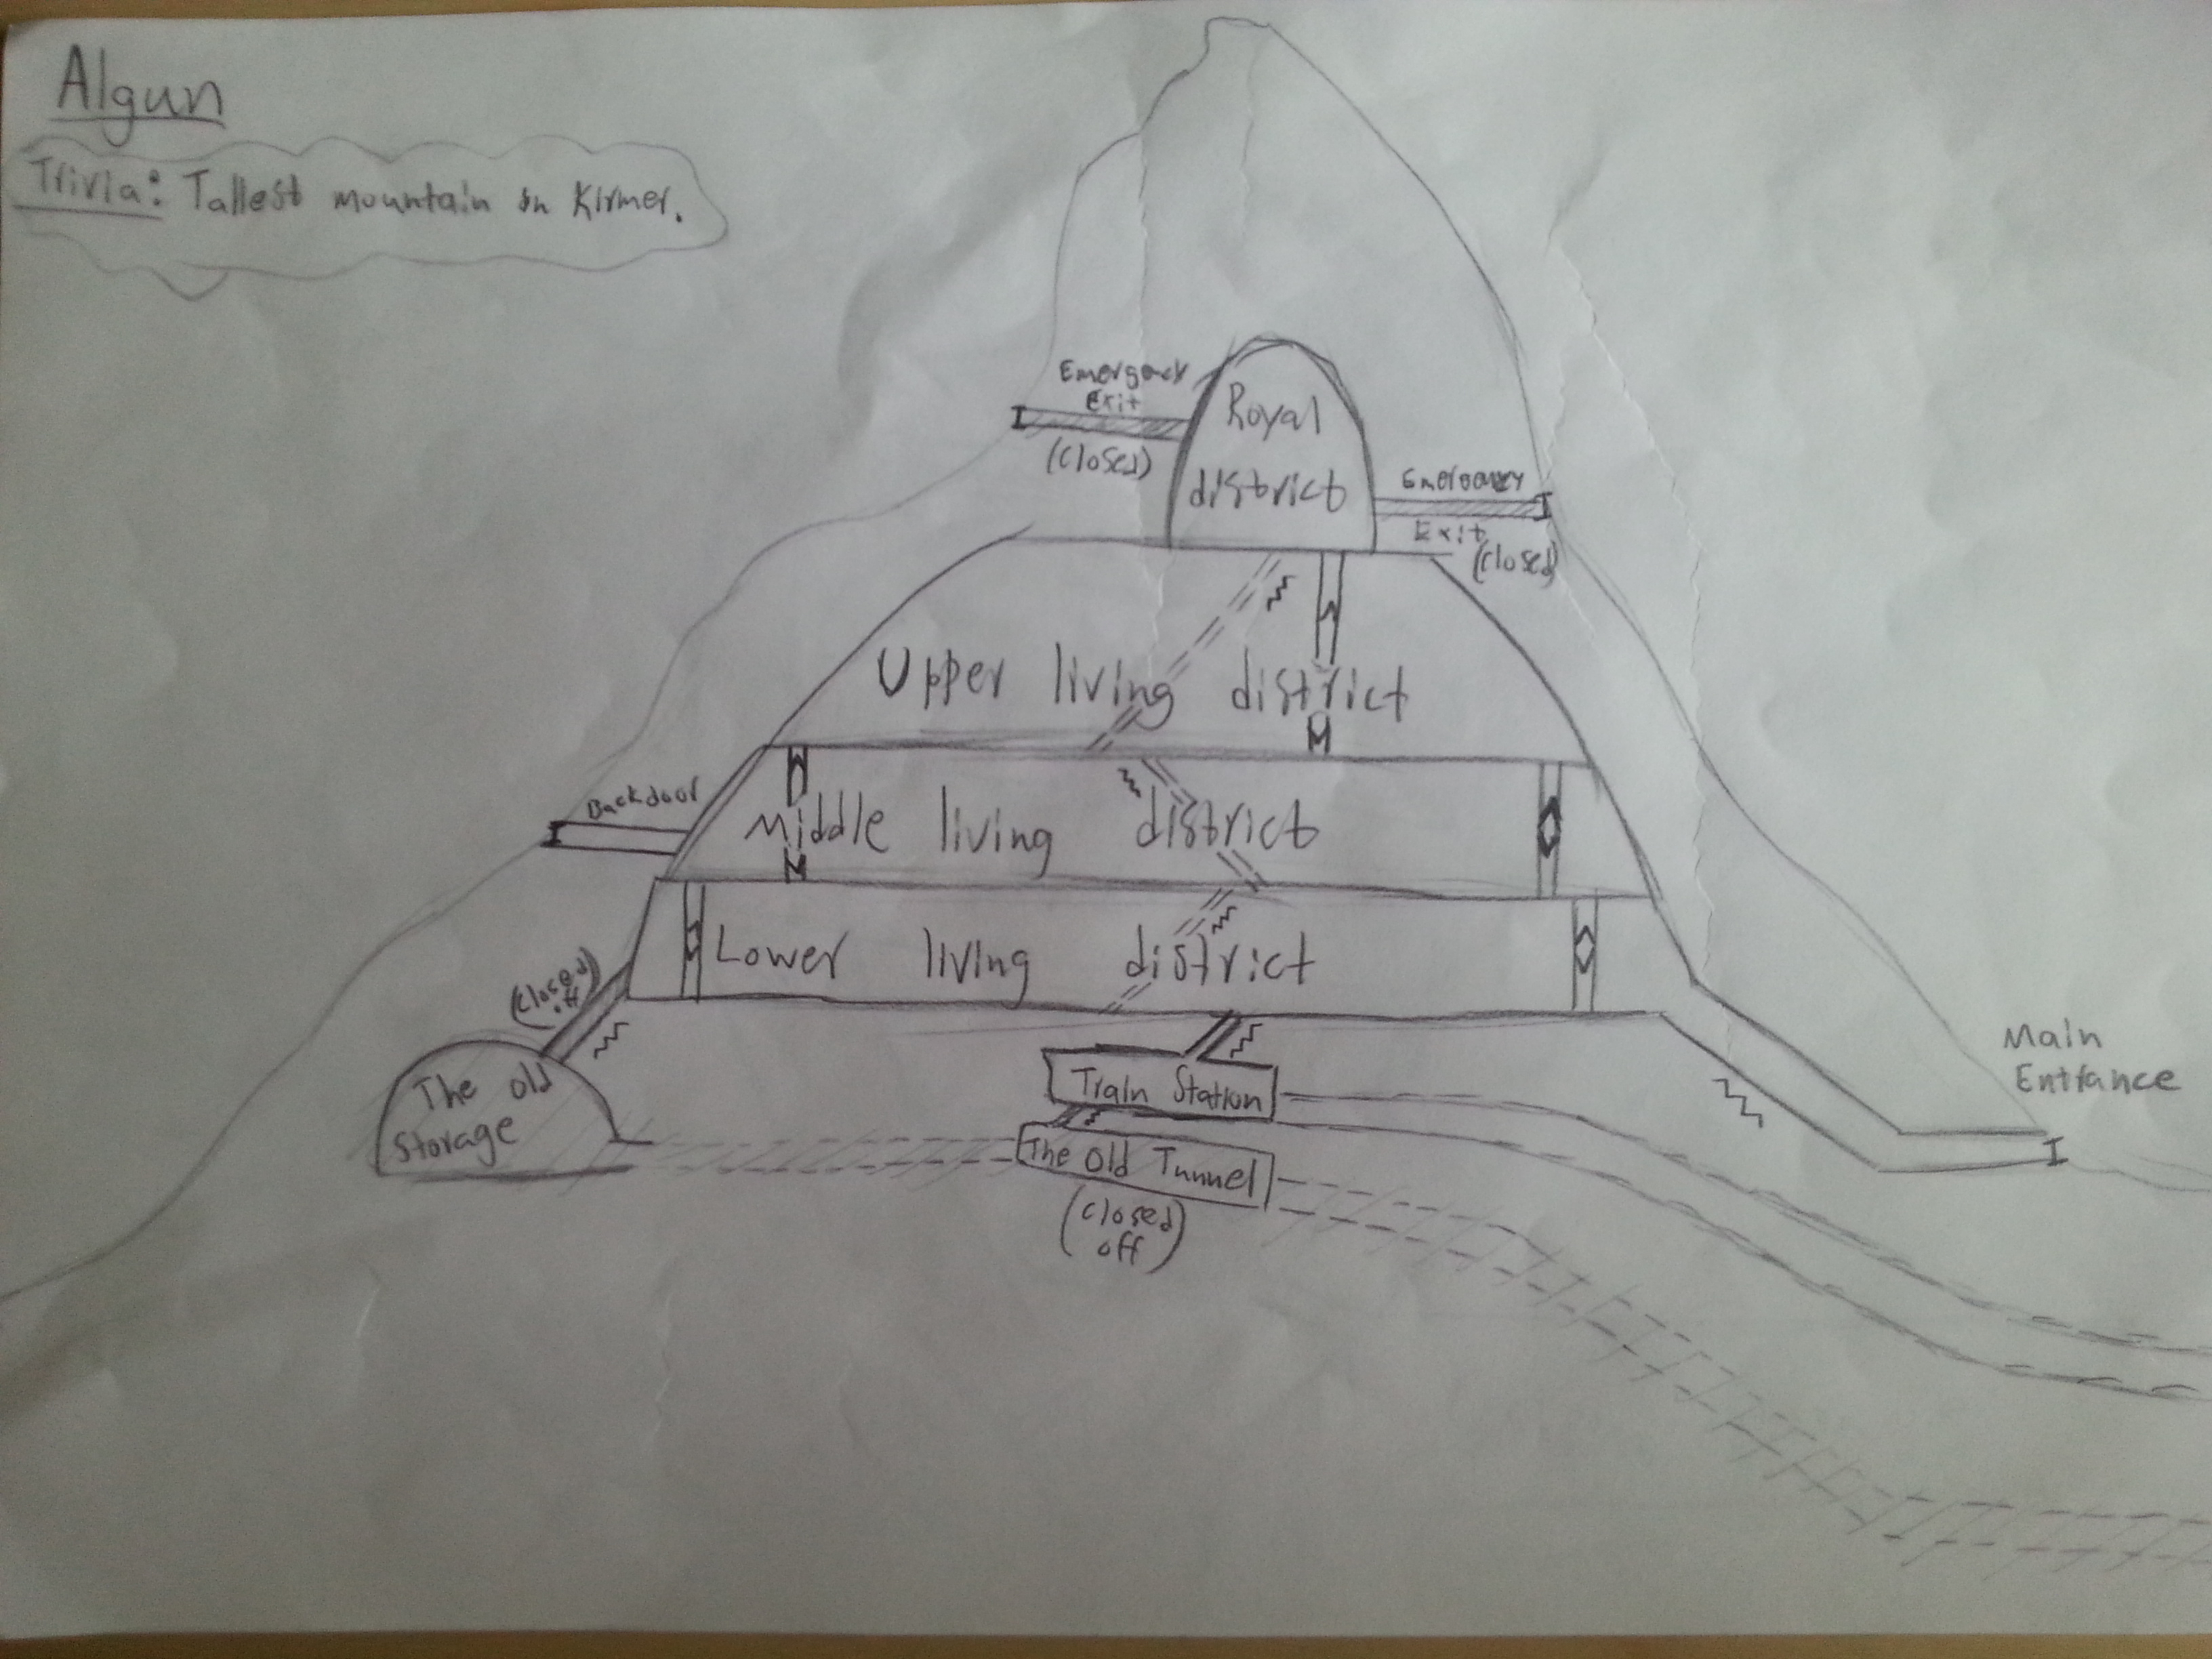 Algun
Trivia: Tallest mountain in Kirmer.
Emergency
Exit
(closed)
Royal
district
Emergency
Exit
(closed)
Upper living district
Backdoor
Middle living district
Lower living district
(closed
off)
The old
Storage
Train Station
The Old Tunnel
(closed
off)
Main
Entrance